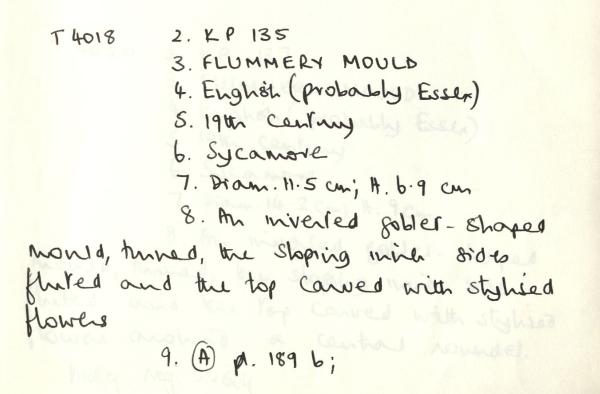 T 4018 2. KP 135
3. FLUMMERY MOULD
4. English (probably Essex)
5. 19th century
6. Sycamore
7. Diam. 11.5 cm; H. 6.9 cm
8. An inverted goblet-shaped
mould, turned, the sloping inner sides
fluted and the top carved with stylised
flowers
9. (A) pl. 189 b;